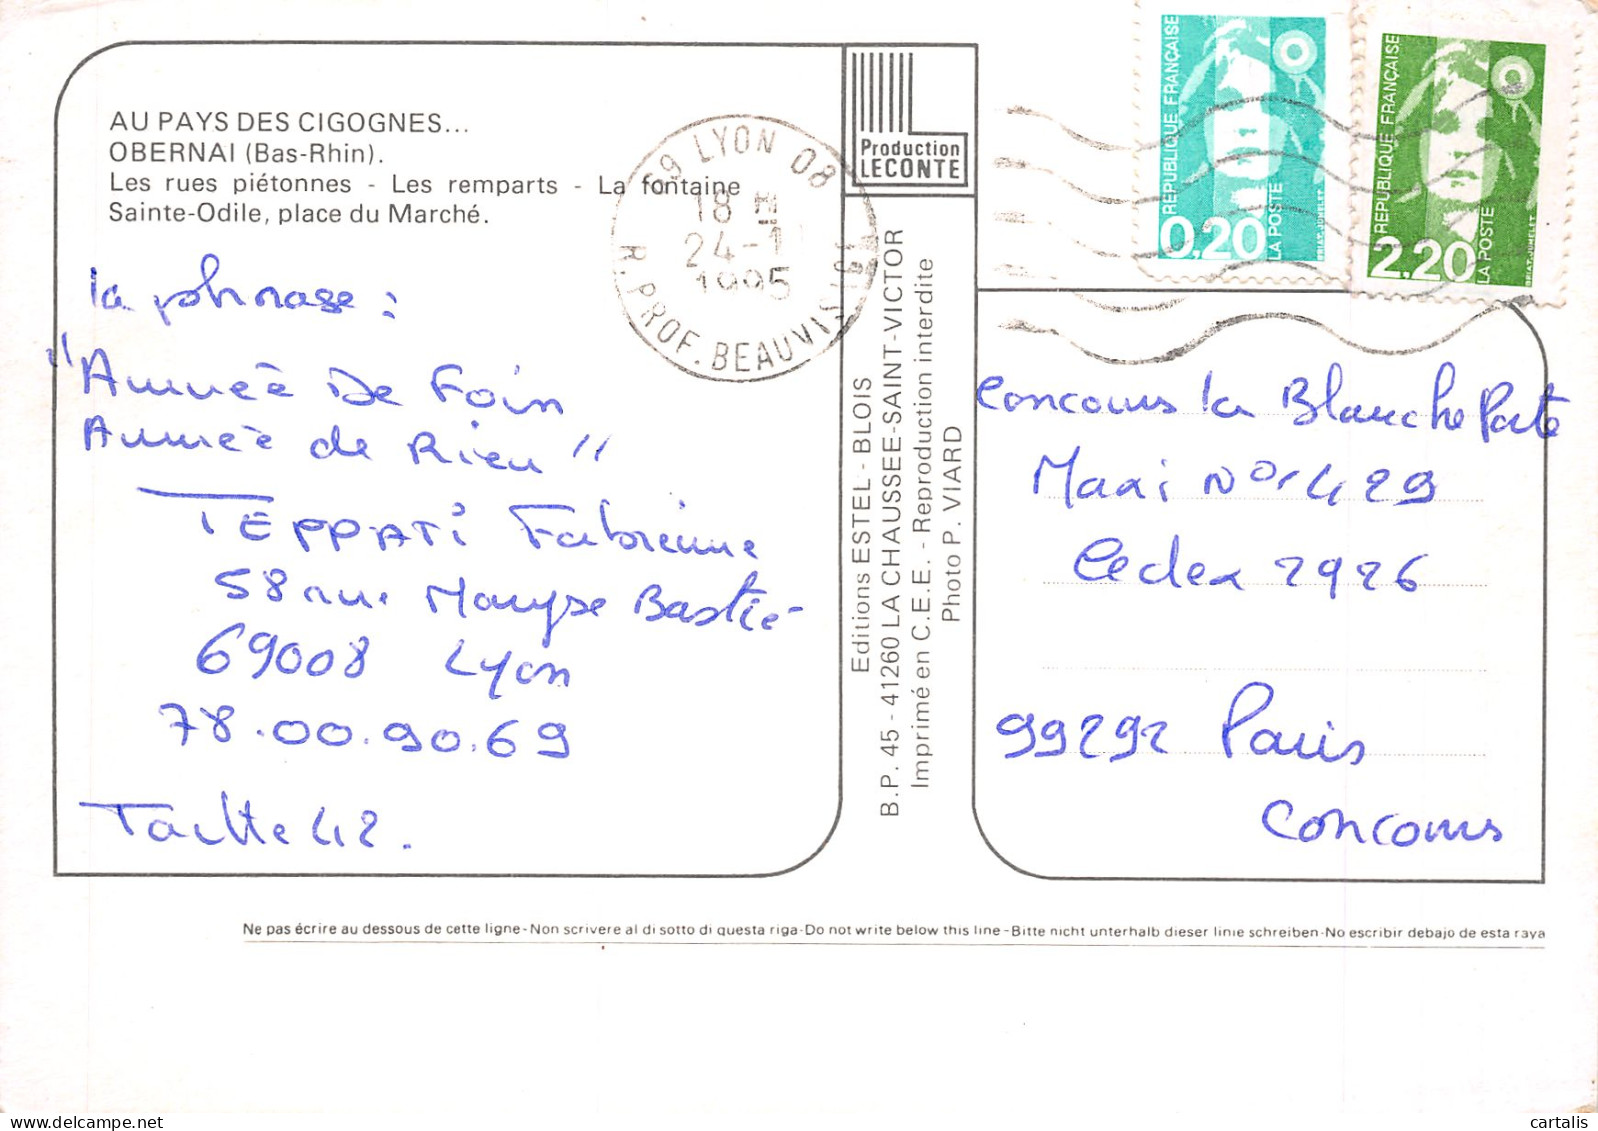 AU PAYS DES CIGOGNES...
OBERNAI (Bas-Rhin).
Les rues piétonnes - Les remparts - La fontaine
Sainte-Odile, place du Marché.
la phrase :
"Année De Foin
Année de Rien"
TEPPATI Fabienne
58 rue Maryse Bastié
69008 Lyon
78.00.90.69
Taille 42.
69 LYON 08
18 H
24-1
1995
R. PROF. BEAUVISAGE
Production
LECONTE
Editions ESTEL - BLOIS
B.P. 45 - 41260 LA CHAUSSEE-SAINT-VICTOR
Imprimé en C.E.E. - Reproduction interdite
Photo P. VIARD
REPUBLIQUE FRANÇAISE
0,20
LA POSTE
BRIAT-JUMELET
REPUBLIQUE FRANÇAISE
2,20
LA POSTE
BRIAT-JUMELET
Concours la Blanche Porte
Maxi N° 1429
Cedex 2926
99292 Paris
Concours
Ne pas écrire au dessous de cette ligne-Non scrivere al di sotto di questa riga-Do not write below this line-Bitte nicht unterhalb dieser linie schreiben-No escribir debajo de esta raya
cartalis